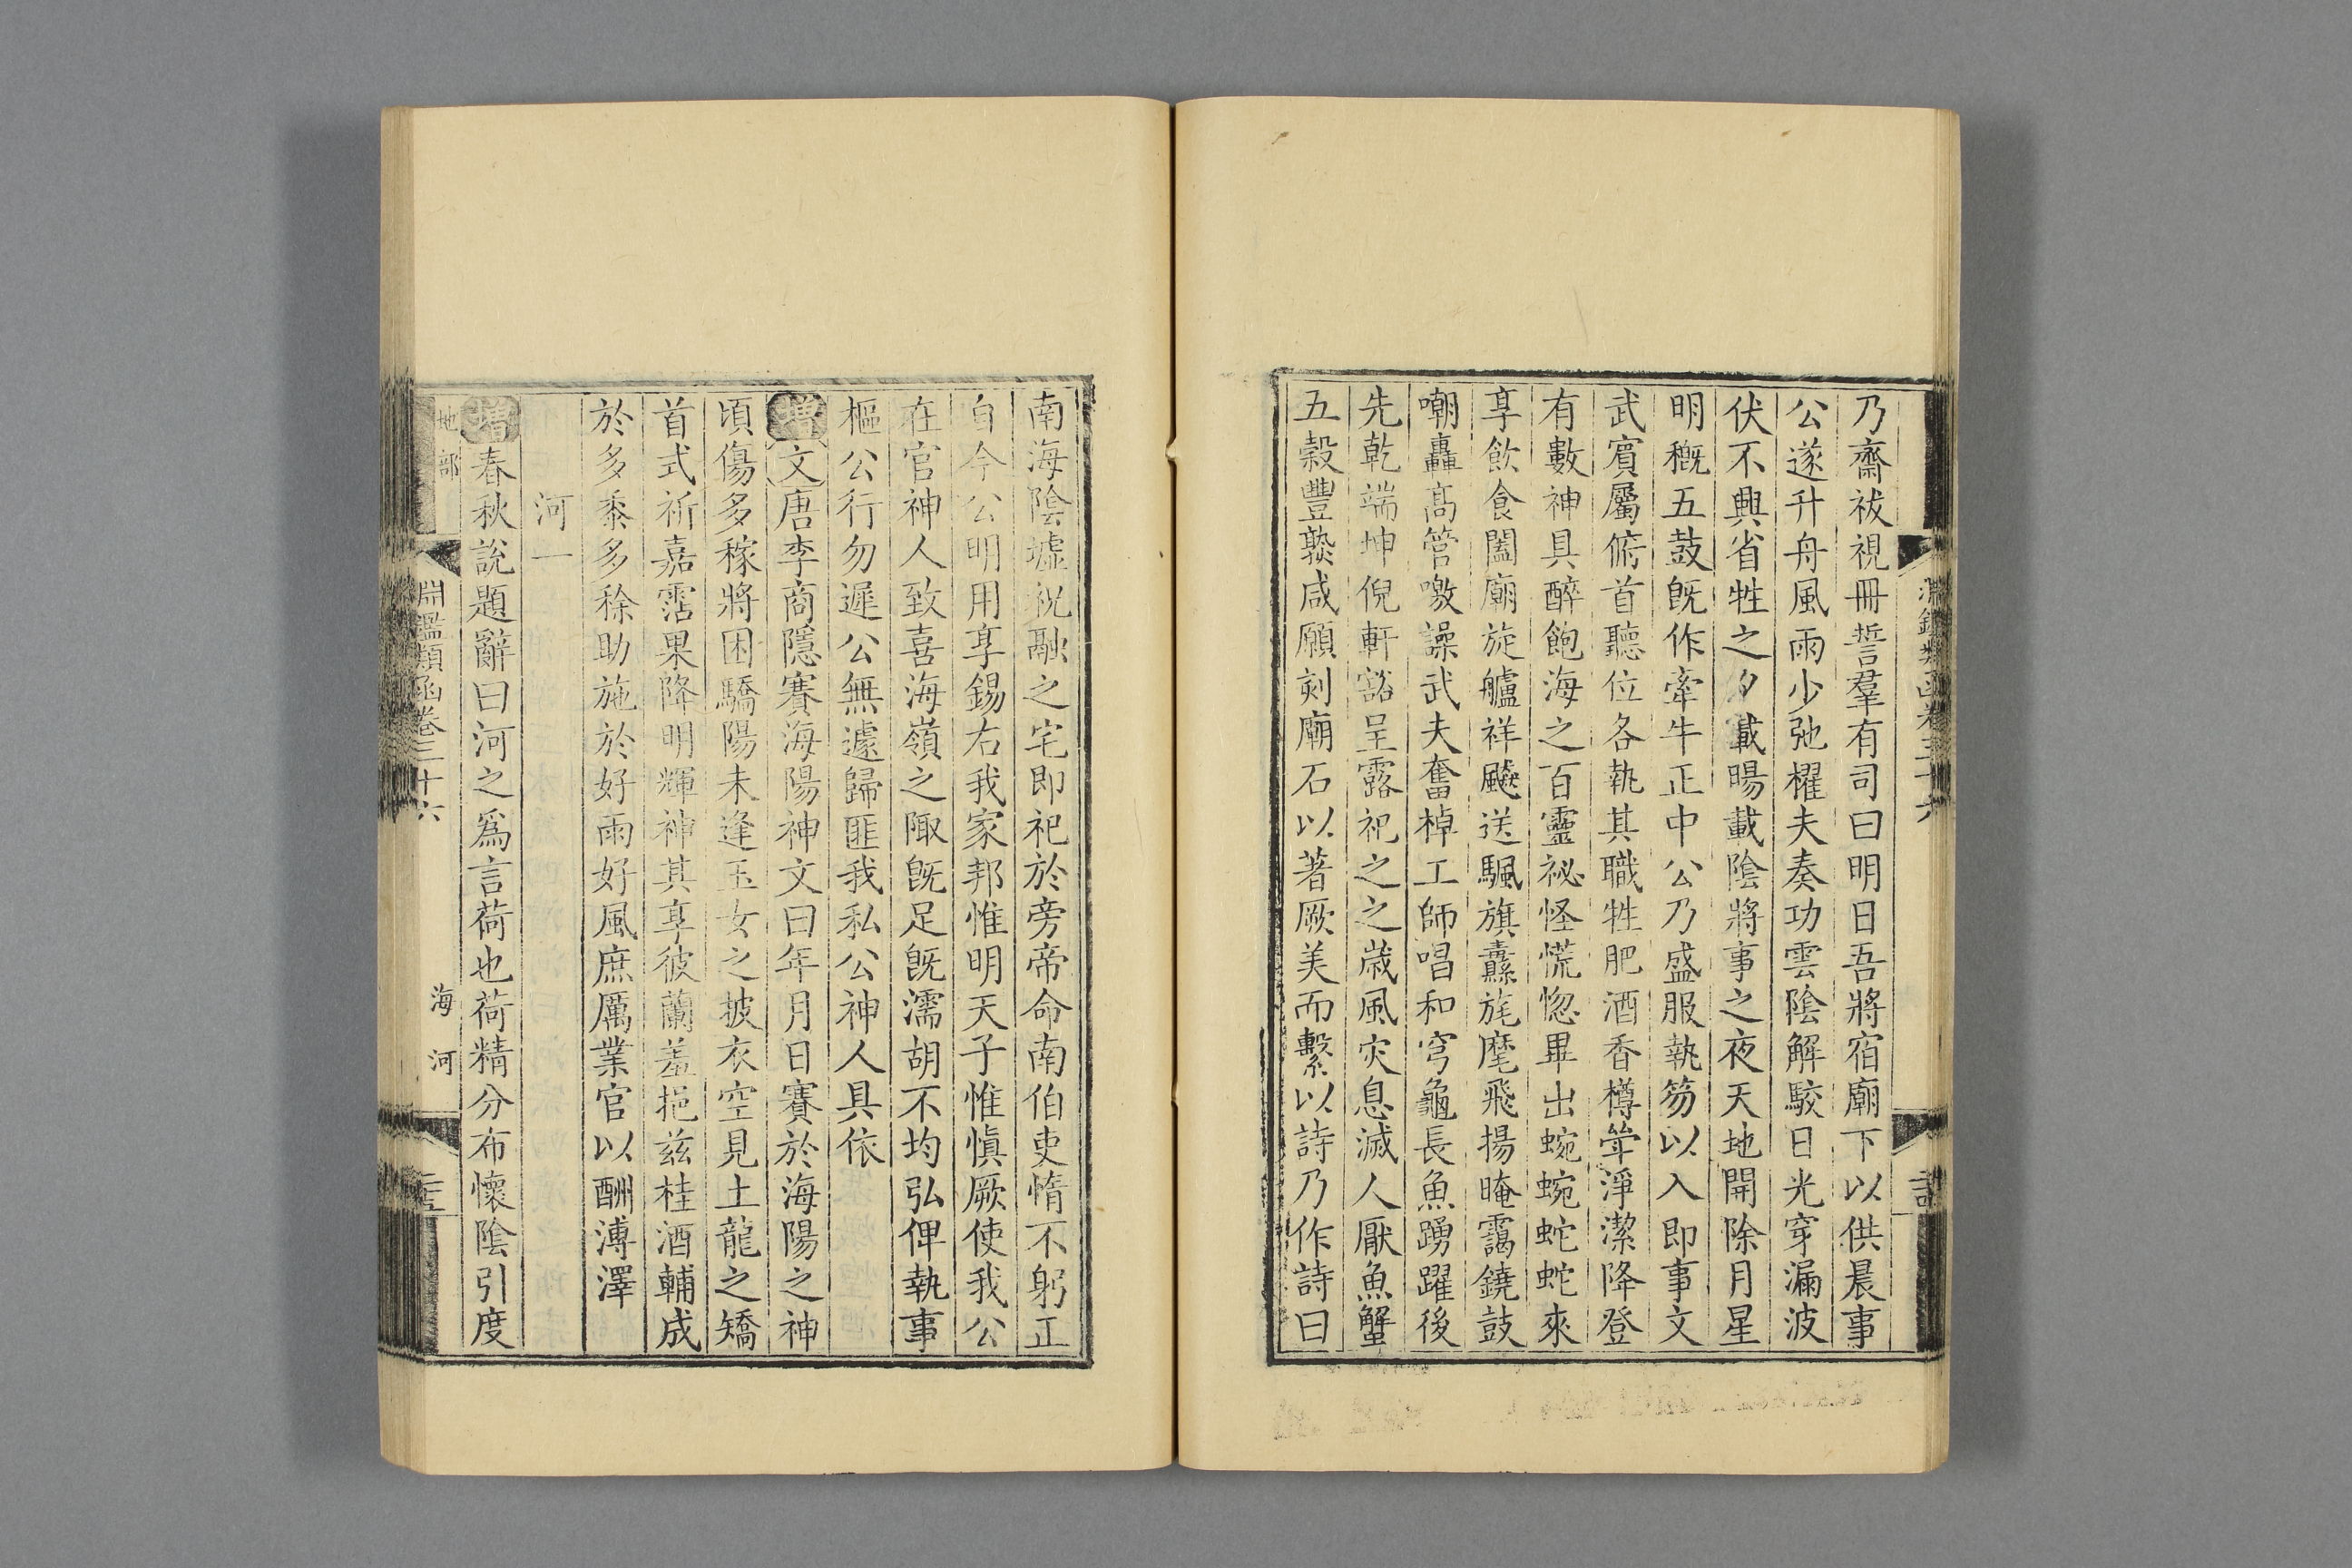 乃齋祓視冊誓羣有司曰明日吾將宿廟下以供晨事
公遂升舟風雨少弛櫂夫奏功雲陰解駮日光穿漏波
伏不興省牲之夕載暘載陰將事之夜天地開除月星
明穊五鼓旣作牽牛正中公乃盛服執笏以入即事文
武賓屬俯首聽位各執其職牲肥酒香樽爵淨潔降登
有數神具醉飽海之百靈祕怪慌惚畢出蜿蜿蛇蛇來
享飲食闔廟旋艫祥飈送颿旗纛旄麾飛揚晻靄鐃鼓
嘲轟髙管噭譟武夫奮棹工師唱和穹龜長魚踴躍後
先乾端坤倪軒豁呈露祀之之歲風灾息滅人厭魚蟹
五榖豐歘咸願刻廟石以著厥美而繫以詩乃作詩曰
南海陰墟祝融之宅即祀於旁帝命南伯吏惰不躬正
自今公明用享錫右我家邦惟明天子惟愼厥使我公
在官神人致喜海嶺之陬旣足旣濡胡不均弘俾執事
樞公行勿遲公無遽歸匪我私公神人具依
增文唐李商隱賽海陽神文曰年月日賽於海陽之神
頃傷多稼將困驕陽未逢玉女之披衣空見土龍之矯
首式祈嘉霑果降明輝神其享彼蘭羞挹兹桂酒輔成
於多黍多稌助施於好雨好風庶厲業官以酬溥澤
河一
增春秋說題辭曰河之爲言荷也荷精分布懷陰引度
地部
淵鑑類函卷三十六
海河